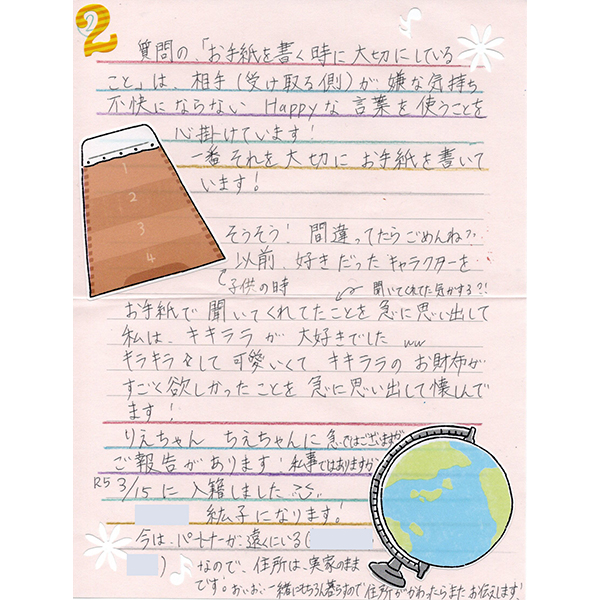 2
質問の、「お手紙を書く時に大切にしている
こと」は、相手（受け取る側）が嫌な気持ち
不快にならない Happyな言葉を使うことを
心掛けています！
一番それを大切にお手紙を書いて
います！
1
2
3
4
そうそう！間違ってたらごめんね？
以前、好きだったキャラクターを
子供の時
聞いてくれてた気がする？！
お手紙で聞いてくれてたことを急に思い出して
私は、キキララが大好きでした ww
キラキラして可愛いくて、キキララのお財布が
すごく欲しかったことを急に思い出して懐しんで
ます！
りえちゃん ちえちゃんに急ではございますが
ご報告があります！私事ではありますが
R5 3/15に入籍しました
紘子になります！
今は、パートナーが遠くにいる（
）なので、住所は、実家のまま
です。おいおい一緒にもちろん暮らすので住所がかわったらまたお伝えします！